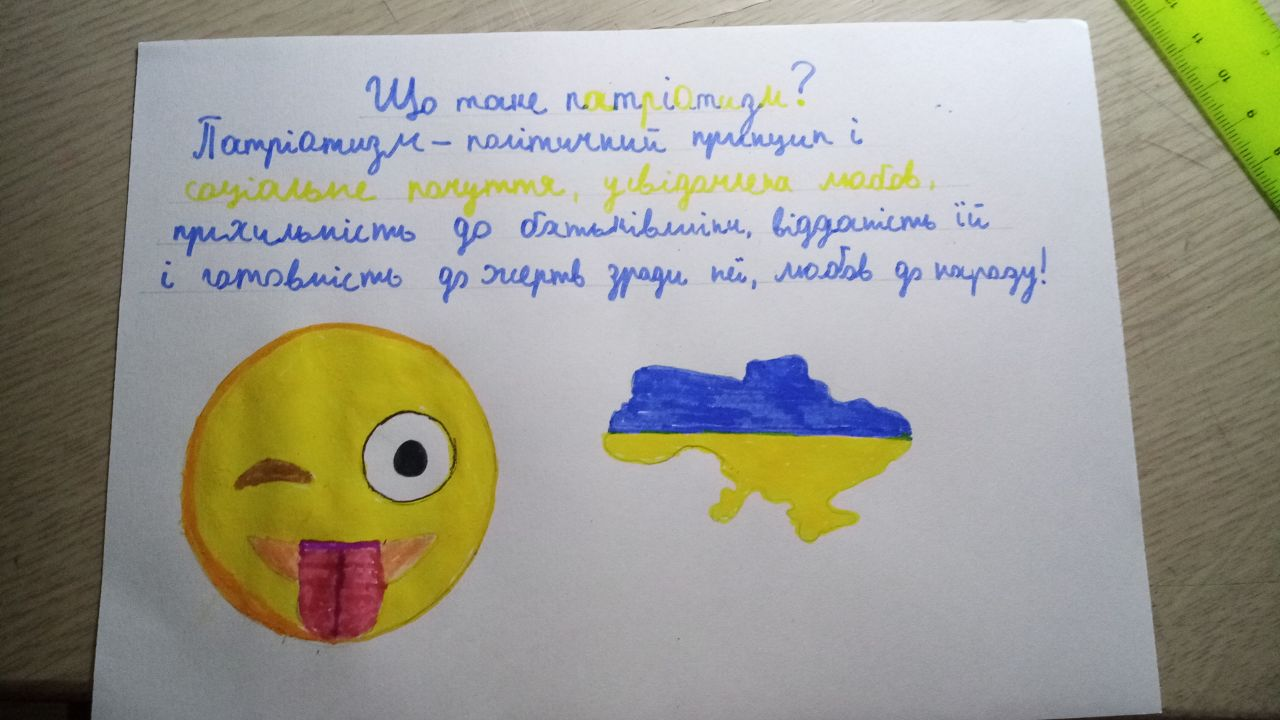 Що таке патріотизм?
Патріотизм – політичний принцип і
соціальне почуття, усвідомлена любов,
прихильність до батьківшини, відданість їй
і готовність до жертв зради неї, любов до народу!
12
11
10
9
8